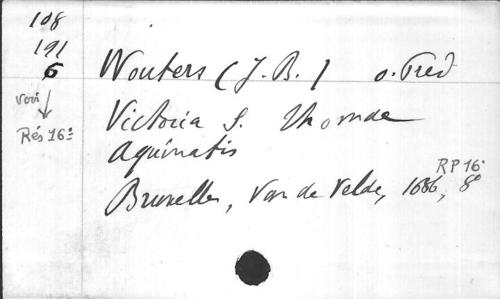 108
191
6 Wouters (J.B.) o. Pred
voir
Rés 16º
Victoria S. Thomae
Aquinatis
RP 16º
Bruxelles, Van de Velde, 1686, 8º